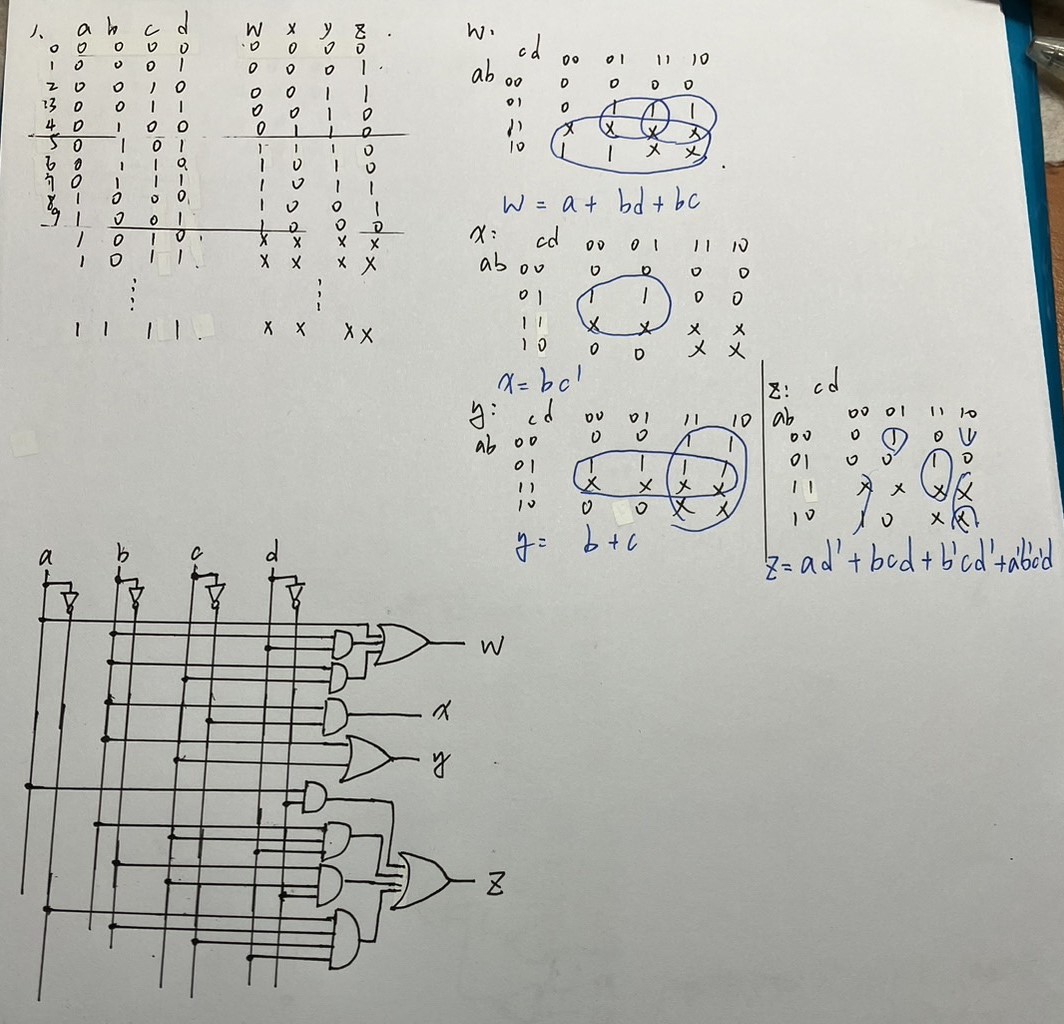 1. a b c d w x y z
0 0 0 0 0 0 0 0 0
1 0 0 0 1 0 0 0 1
2 0 0 1 0 0 0 1 1
3 0 0 1 1 0 0 1 0
4 0 1 0 0 0 1 1 0
5 0 1 0 1 1 1 1 0
6 0 1 1 0 1 0 1 0
7 0 1 1 1 1 0 1 1
8 1 0 0 0 1 0 0 1
9 1 0 0 1 1 0 0 0
1 0 1 0 x x x x
1 0 1 1 x x x x
1 1 1 1 x x x x
w:
cd 00 01 11 10
ab 00 0 0 0 0
01 0 1 1 1
11 x x x x
10 1 1 x x
w = a + bd + bc
x:
cd 00 01 11 10
ab 00 0 0 0 0
01 1 1 0 0
11 x x x x
10 0 0 x x
x = bc'
y:
cd 00 01 11 10
ab 00 0 0 1 1
01 1 1 1 1
11 x x x x
10 0 0 x x
y = b + c
z: cd
ab 00 01 11 10
00 0 1 0 1
01 0 0 1 0
11 x x x x
10 1 0 x x
z = ad' + bcd + b'cd' + a'b'c'd
a b c d
w
x
y
z